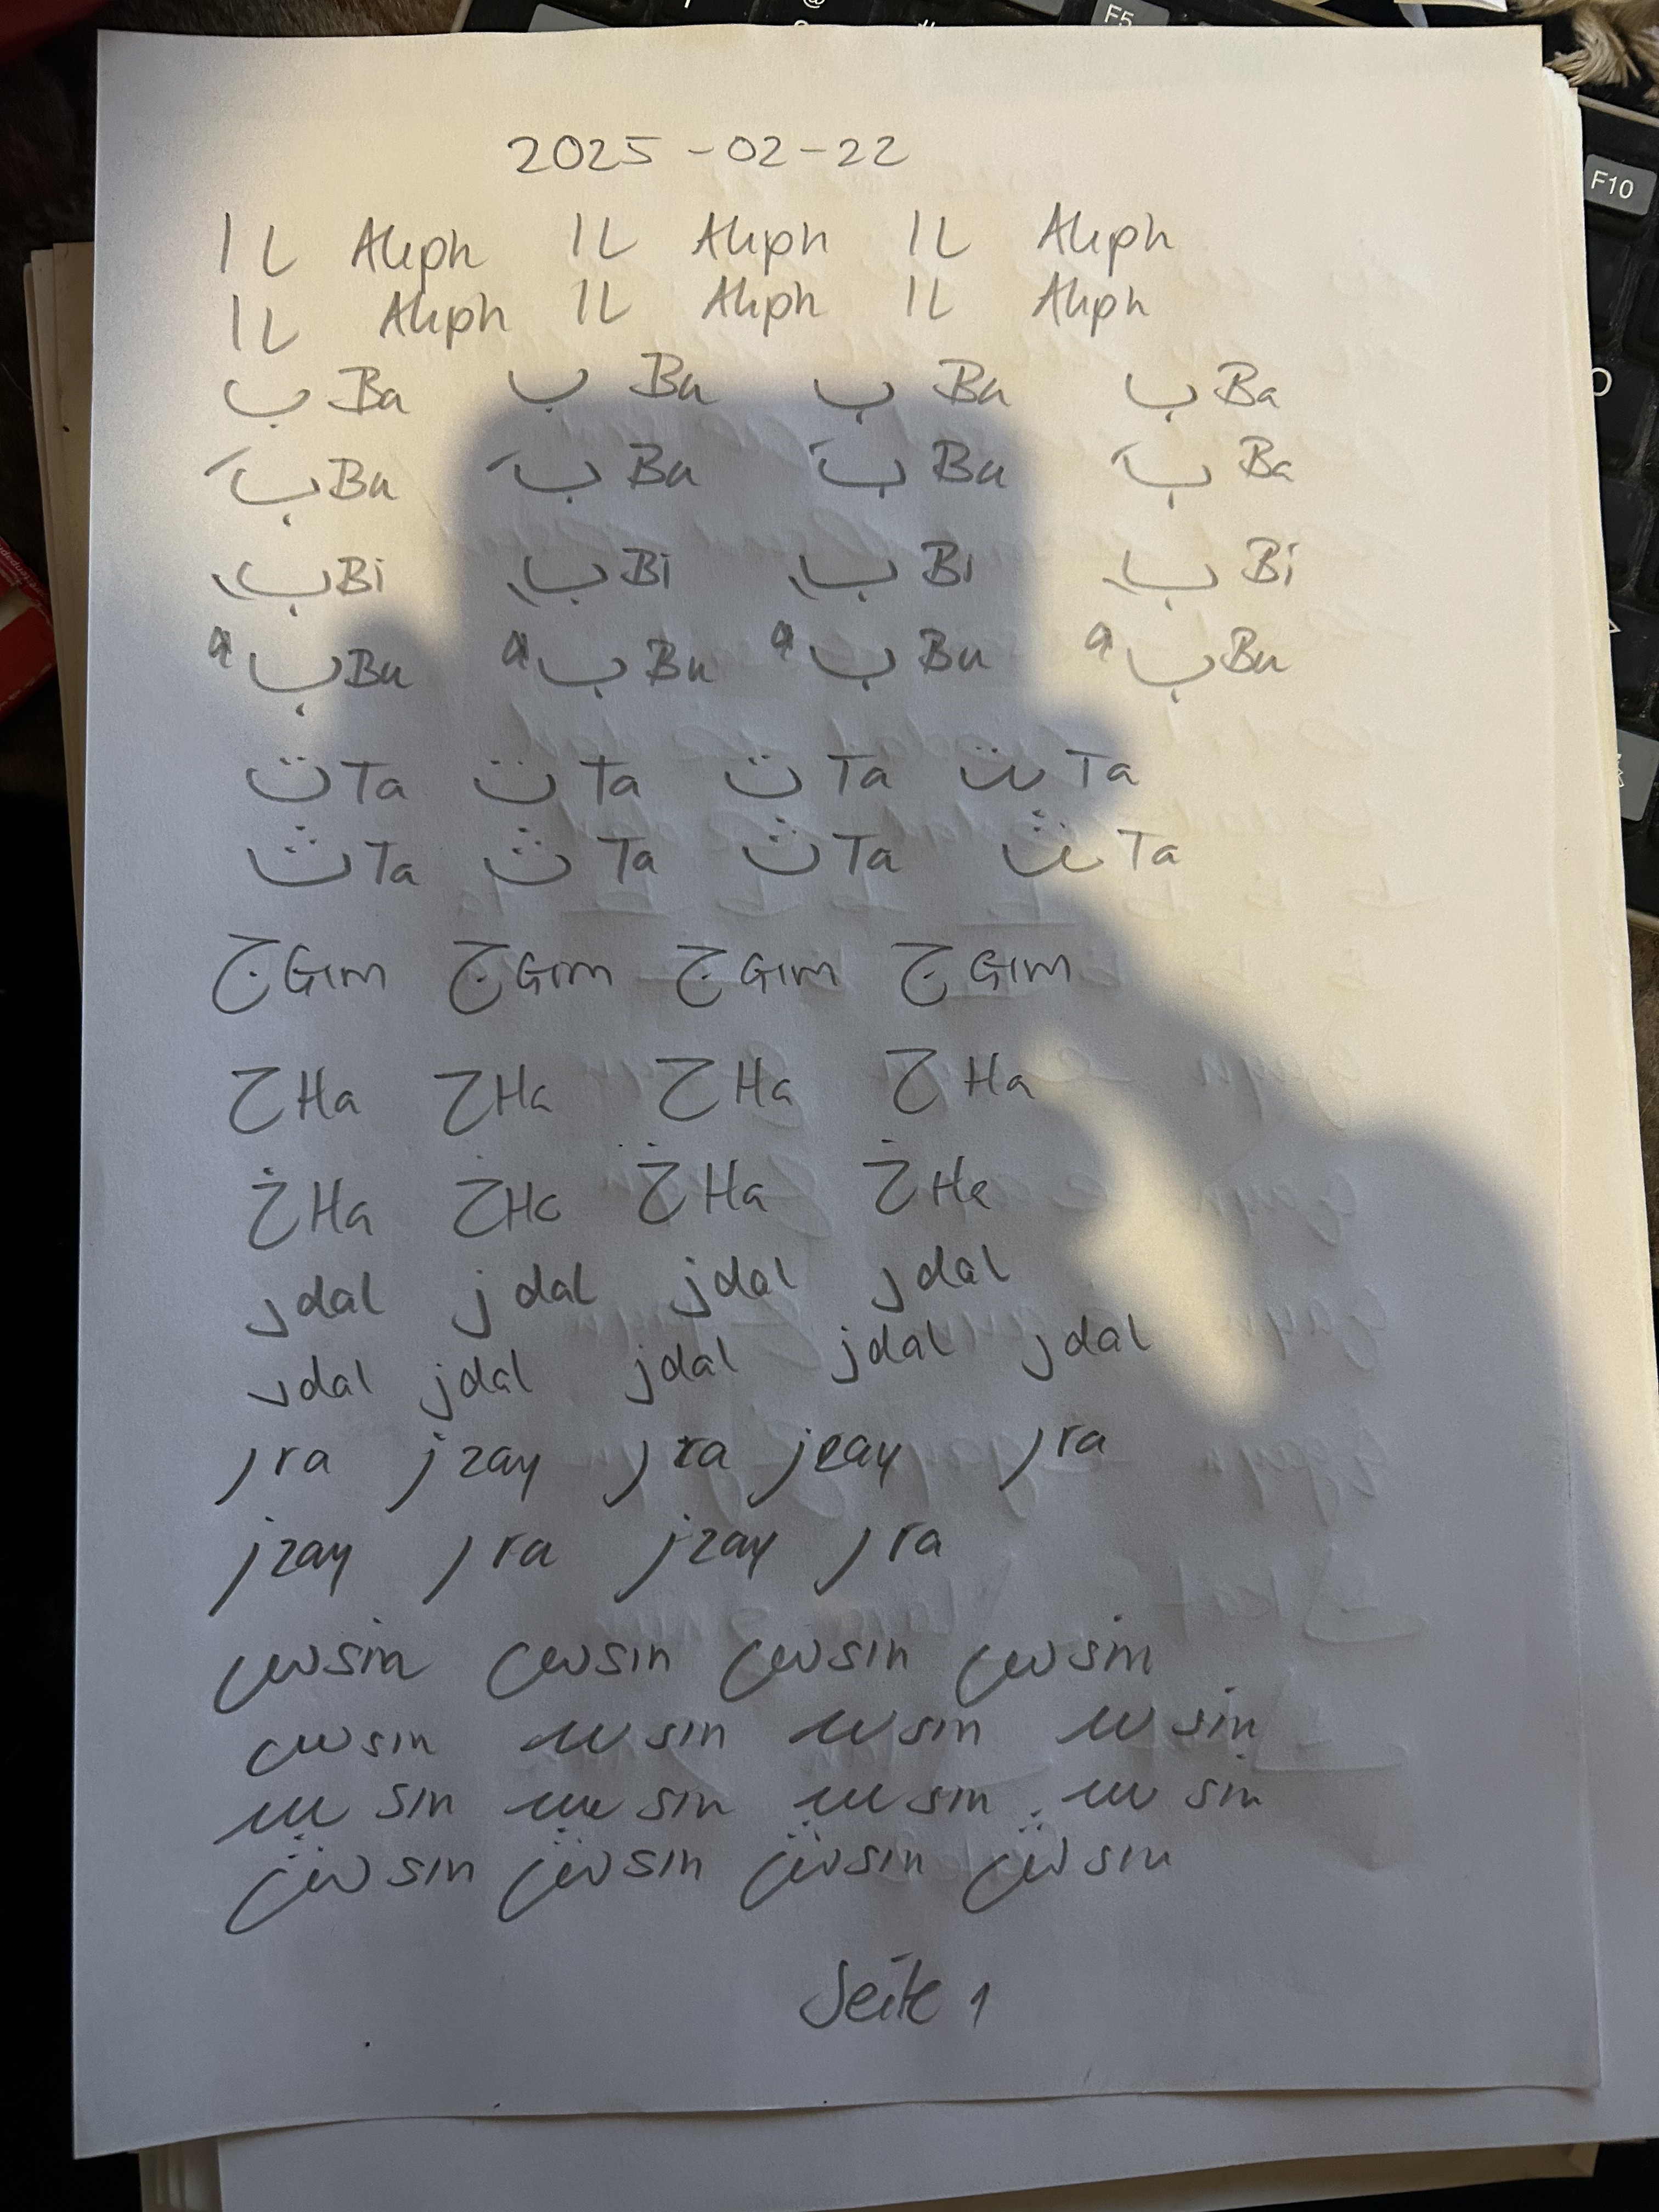 2025-02-22
ا ل Aliph ا ل Aliph ا ل Aliph
ا ل Aliph ا ل Aliph ا ل Aliph
ب Ba ب Ba ب Ba ب Ba
بَ Ba بَ Ba بَ Ba بَ Ba
بِ Bi بِ Bi بِ Bi بِ Bi
بُ Bu بُ Bu بُ Bu بُ Bu
ت Ta ت Ta ت Ta ت Ta
ث Ta ث Ta ث Ta ث Ta
ج Gim ج Gim ج Gim ج Gim
ح Ha ح Ha ح Ha ح Ha
خ Ha خ Ha خ Ha خ Ha
د dal د dal د dal د dal
د dal د dal د dal د dal د dal
ر ra ز zay ر ra ز zay ر ra
ز zay ر ra ز zay ر ra
س sin س sin س sin س sin
س sin س sin س sin س sin
ش sin ش sin ش sin ش sin
ش sin ش sin ش sin ش sin
Seite 1